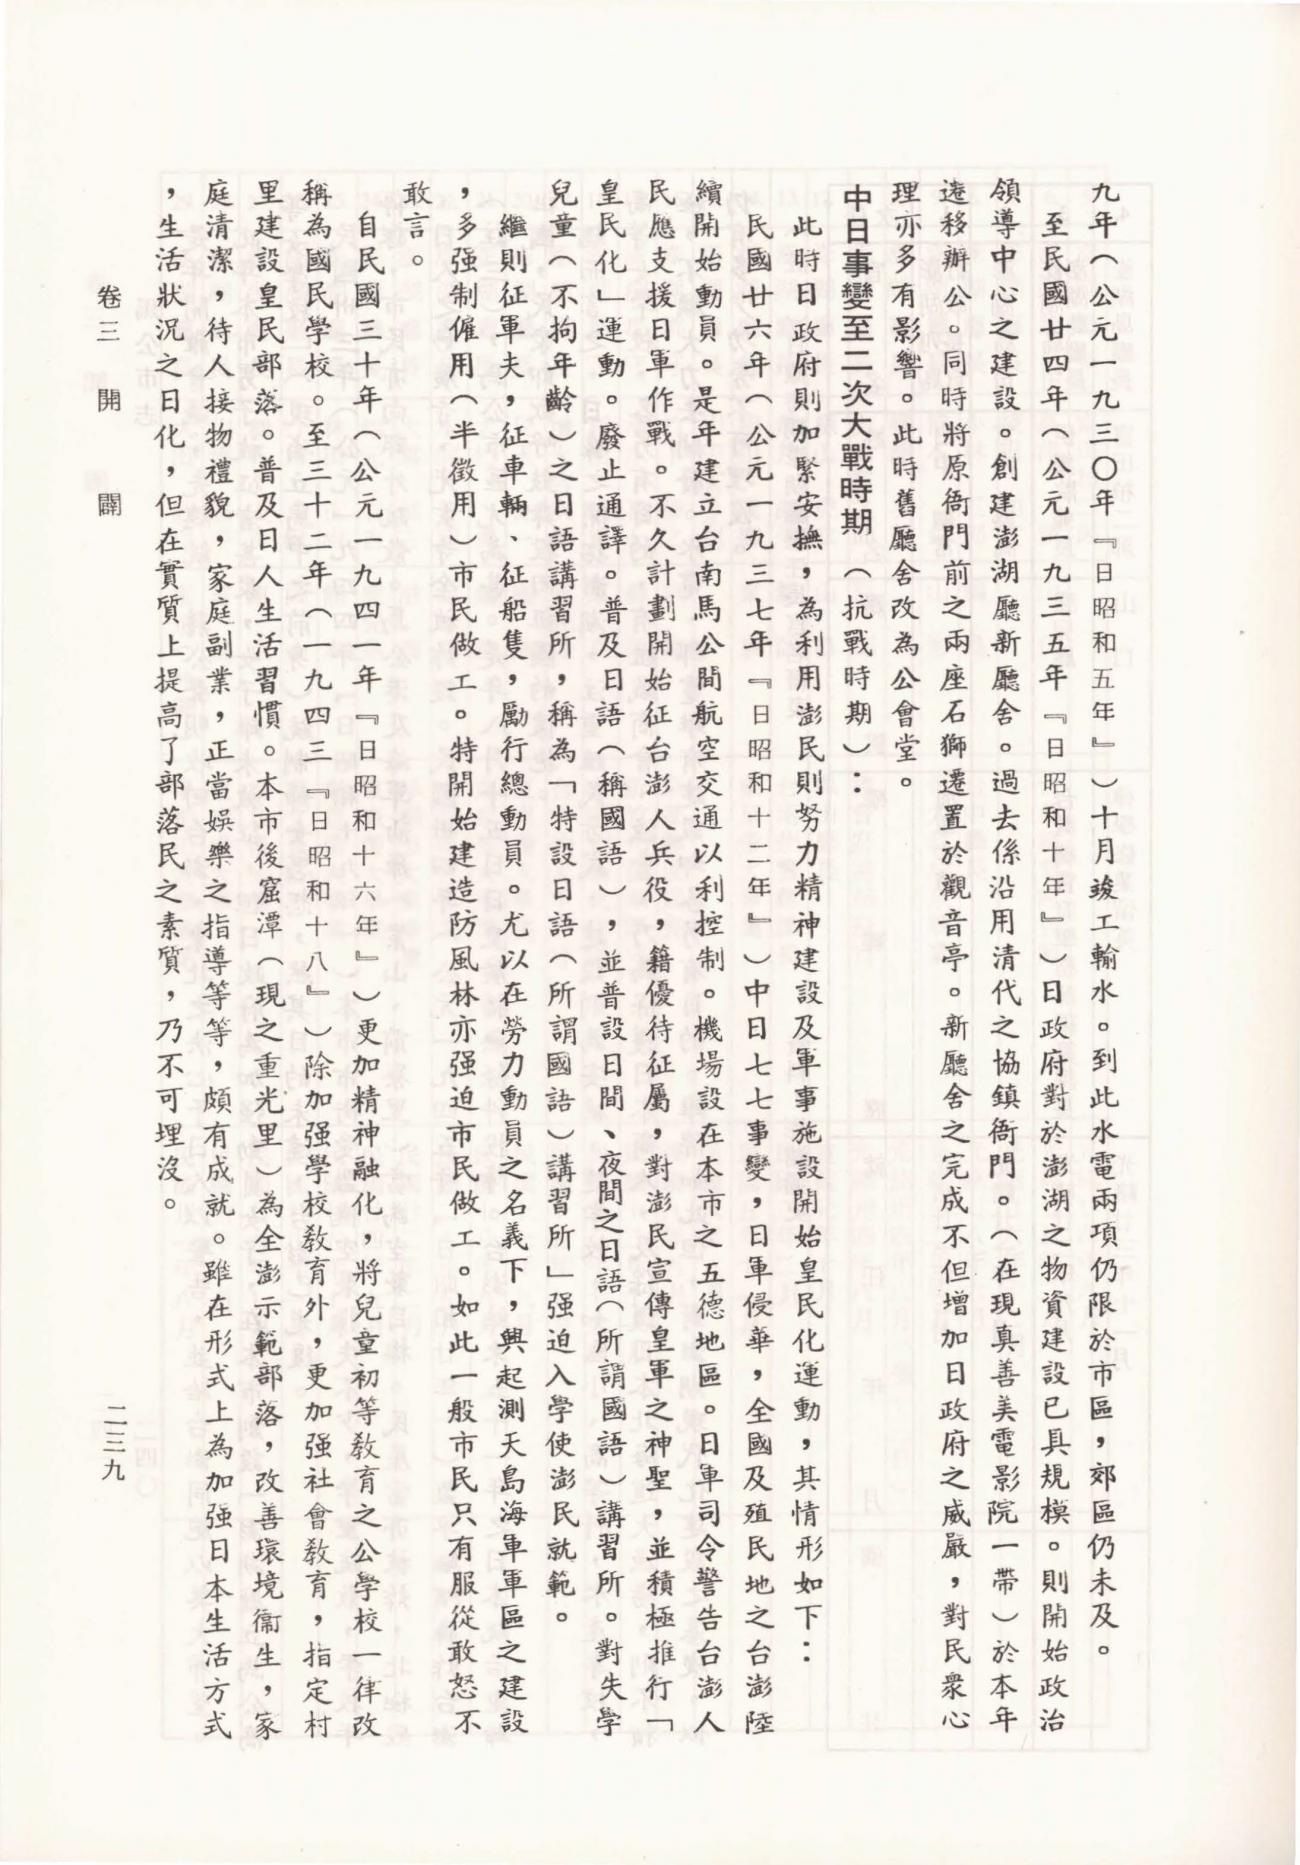 九年（公元一九三〇年『日昭和五年』）十月竣工輸水。到此水電兩項仍限於市區，郊區仍未及。
至民國廿四年（公元一九三五年『日昭和十年』）日政府對於澎湖之物資建設已具規模。則開始政治
領導中心之建設。創建澎湖廳新廳舍。過去係沿用清代之協鎮衙門。（在現真善美電影院一帶）於本年
遷移辦公。同時將原衙門前之兩座石獅遷置於觀音亭。新廳舍之完成不但增加日政府之威嚴，對民衆心
理亦多有影響。此時舊廳舍改為公會堂。
中日事變至二次大戰時期（抗戰時期）：
此時日政府則加緊安撫，為利用澎民則努力精神建設及軍事施設開始皇民化運動，其情形如下：
民國廿六年（公元一九三七年『日昭和十二年』）中日七七事變，日軍侵華，全國及殖民地之台澎陸
續開始動員。是年建立台南馬公間航空交通以利控制。機場設在本市之五德地區。日軍司令警告台澎人
民應支援日軍作戰。不久計劃開始征台澎人兵役，籍優待征屬，對澎民宣傳皇軍之神聖，並積極推行「
皇民化」運動。廢止通譯。普及日語（稱國語），並普設日間、夜間之日語（所謂國語）講習所。對失學
兒童（不拘年齡）之日語講習所，稱為「特設日語（所謂國語）講習所」强迫入學使澎民就範。
繼則征軍夫，征車輛、征船隻，勵行總動員。尤以在勞力動員之名義下，興起測天島海軍軍區之建設
，多强制僱用（半徵用）市民做工。特開始建造防風林亦强迫市民做工。如此一般市民只有服從敢怒不
敢言。
自民國三十年（公元一九四一年『日昭和十六年』）更加精神融化，將兒童初等敎育之公學校一律改
稱為國民學校。至三十二年（一九四三『日昭和十八』）除加强學校敎育外，更加强社會敎育，指定村
里建設皇民部落。普及日人生活習慣。本市後窟潭（現之重光里）為全澎示範部落，改善環境衞生，家
庭清潔，待人接物禮貌，家庭副業，正當娛樂之指導等等，頗有成就。雖在形式上為加强日本生活方式
，生活狀況之日化，但在實質上提高了部落民之素質，乃不可埋沒。
卷三 開闢 二三九